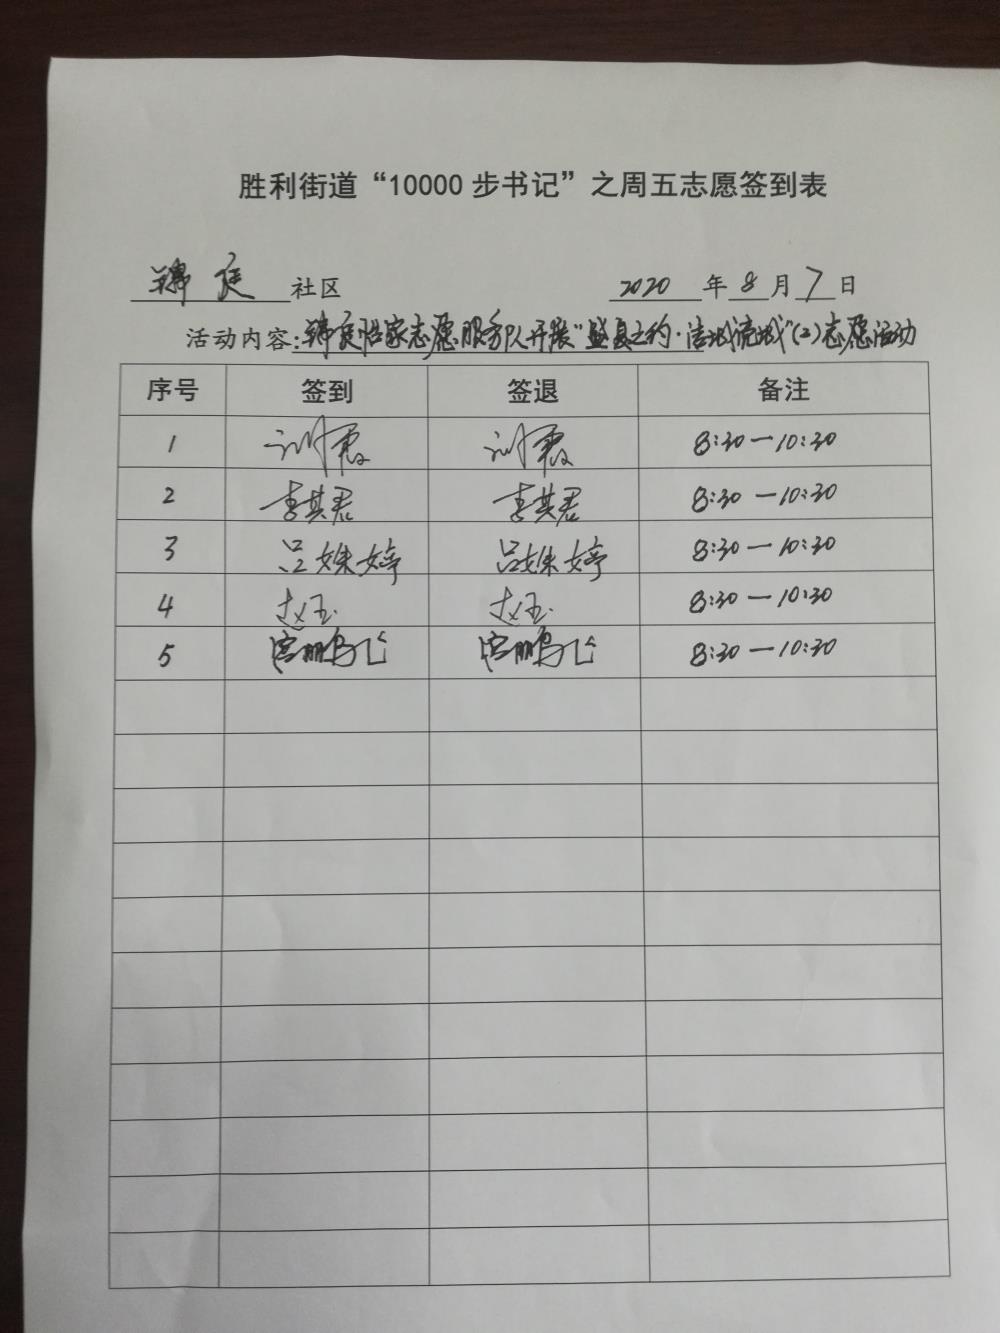 胜利街道“10000步书记”之周五志愿签到表
锦庭社区 2020年8月7日
活动内容:锦庭居家志愿服务队开展“盛夏之约·清城流域”(2)志愿活动
序号 签到 签退 备注
1 刘霞 刘霞 8:30—10:30
2 李其君 李其君 8:30—10:30
3 吕姝婷 吕姝婷 8:30—10:30
4 赵玉 赵玉 8:30—10:30
5 宫鹏飞 宫鹏飞 8:30—10:30